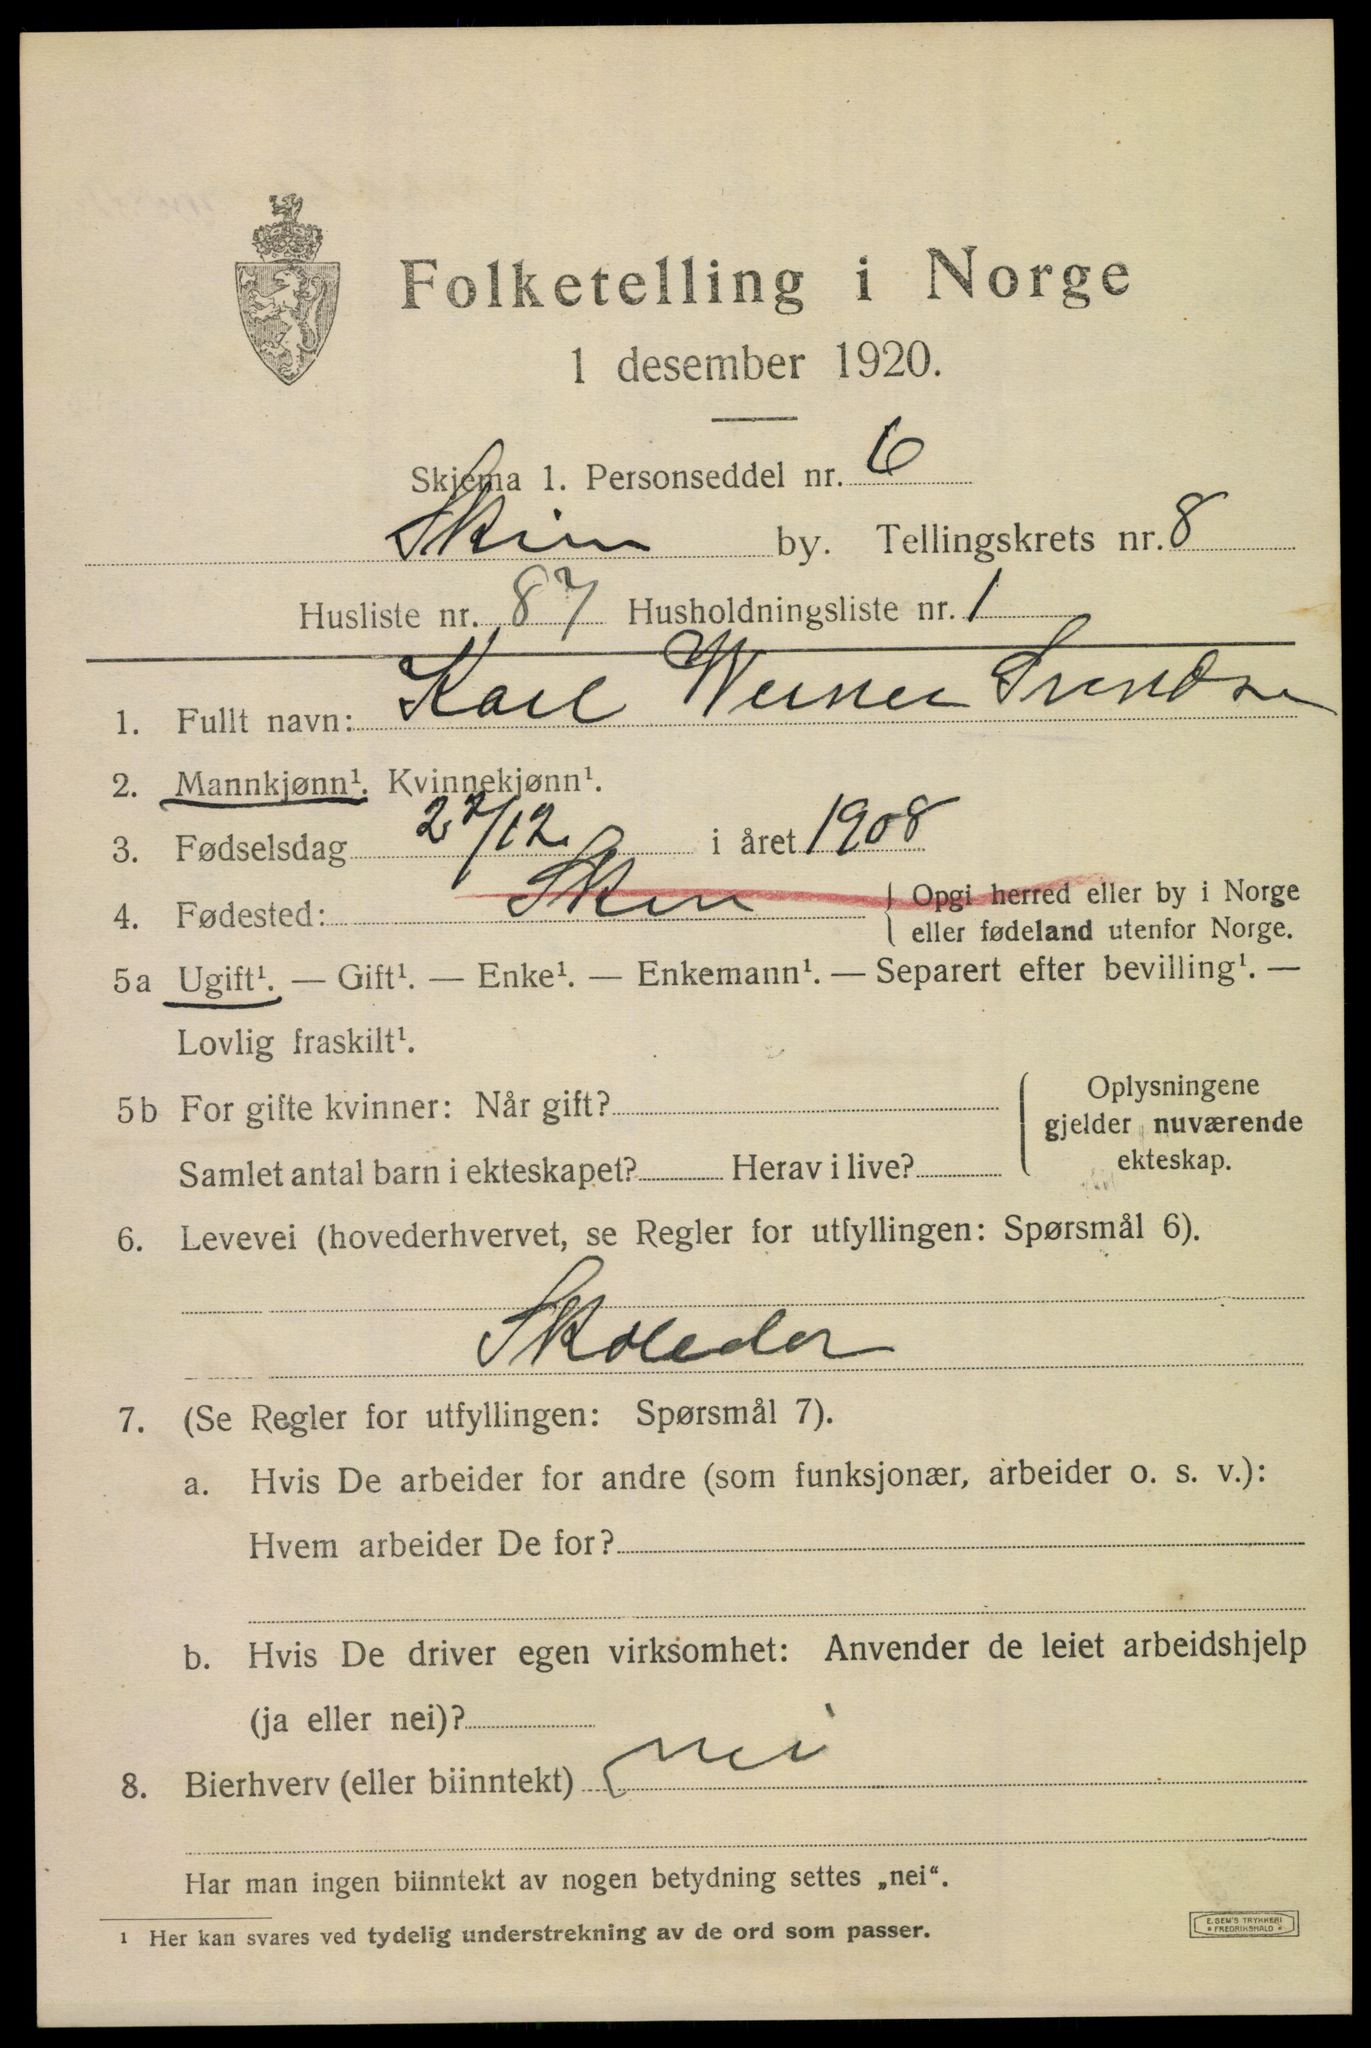 Folketelling i Norge
1 desember 1920.
Skjema 1. Personseddel nr. 6
Skien by. Tellingskrets nr. 8
Husliste nr. 87 Husholdningsliste nr. 1
1. Fullt navn: Karl Werner Svendsen
2. Mannkjønn¹. Kvinnekjønn¹.
3. Fødselsdag 27/12 i året 1908
4. Fødested: Skien { Opgi herred eller by i Norge
eller fødeland utenfor Norge.
5a Ugift¹. — Gift¹. — Enke¹. — Enkemann¹. — Separert efter bevilling¹. —
Lovlig fraskilt¹.
5b For gifte kvinner: Når gift? { Oplysningene
gjelder nuværende
ekteskap.
Samlet antal barn i ekteskapet? Herav i live?
6. Levevei (hovederhvervet, se Regler for utfyllingen: Spørsmål 6).
7. (Se Regler for utfyllingen: Spørsmål 7).
a. Hvis De arbeider for andre (som funksjonær, arbeider o. s. v.):
Hvem arbeider De for?
b. Hvis De driver egen virksomhet: Anvender de leiet arbeidshjelp
(ja eller nei)?
8. Bierhverv (eller biinntekt) nei
Har man ingen biinntekt av nogen betydning settes „nei“.
¹ Her kan svares ved tydelig understrekning av de ord som passer.
E. SEM'S TRYKKERI
* FREDRIKSHALD *